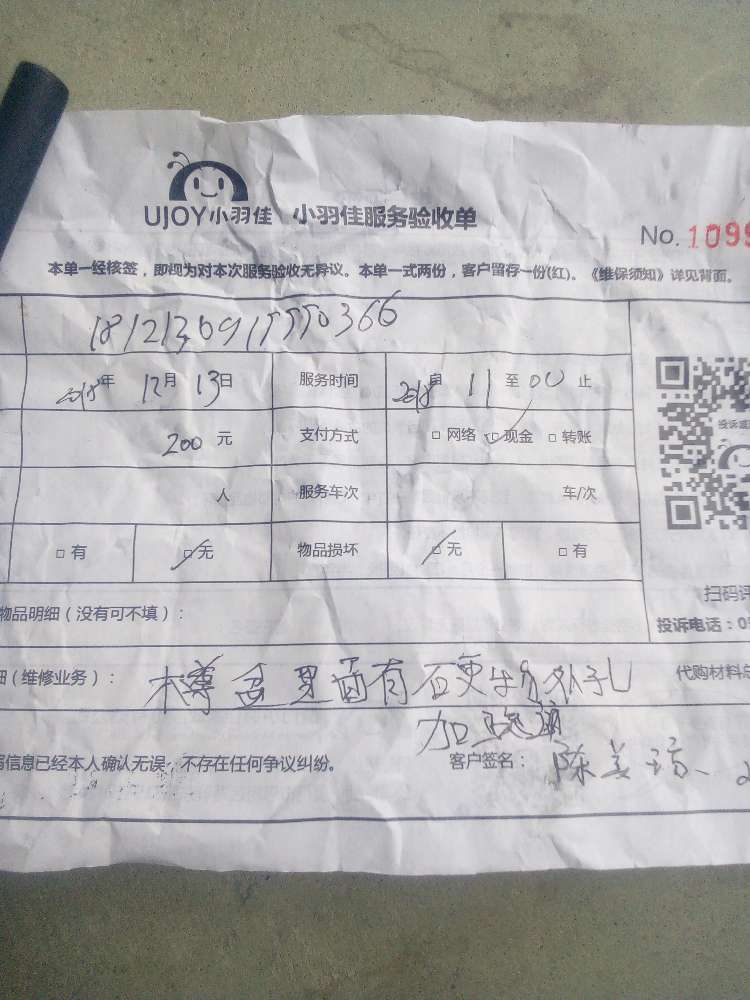 UJOY小羽佳 小羽佳服务验收单
No. 1099
本单一经核签，即视为对本次服务验收无异议。本单一式两份，客户留存一份(红)。《维保须知》详见背面。
2018年 12月 13日 服务时间 2018自 11 至 00 止
200 元 支付方式 □ 网络 □ 现金 □ 转账
人 服务车次 车/次
□ 有 □ 无 物品损坏 □ 无 □ 有
物品明细（没有可不填）：
（维修业务）： 里面有 代购材料
加
信息已经本人确认无误，不存在任何争议纠纷。 客户签名： 陈美
扫码评
投诉电话：0